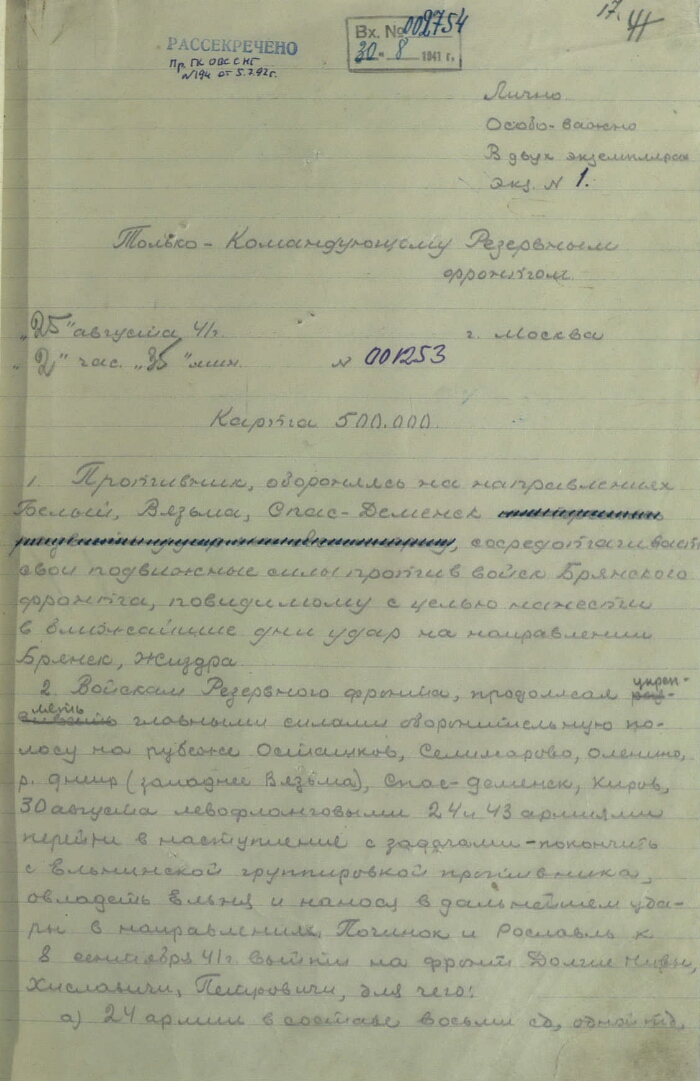 17.
РАССЕКРЕЧЕНО
Пр. ГК ОВС СНГ
№194 от 5.7.92г.
Вх. № 002754
30 " 8 1941 г.
Лично
Особо-важно
В двух экземплярах
Экз. № 1.
Только - Командующему Резервным
фронтом.
„25" августа 41г.
г. Москва
„2" час. „35" мин.
№ 001253
Карта 500.000.
1. Противник, обороняясь на направлениях
Белый, Вязьма, Спас-Деменск
, сосредотачивает
свои подвижные силы против войск Брянского
фронта, повидимому с целью нанести
в ближайшие дни удар на направлении
Брянск, Жиздра.
2. Войскам Резервного фронта, продолжая укреп-
лять главными силами оборонительную по-
лосу на рубеже Осташков, Селижарово, Оленино,
р. Днепр (западнее Вязьма), Спас-Деменск, Киров,
30 августа левофланговыми 24 и 43 армиями
перейти в наступление с задачами - покончить
с ельнинской группировкой противника,
овладеть Ельня и нанося в дальнейшем уда-
ры в направлениях Починок и Рославль к
8 сентября 41г выйти на фронт Долгие Нивы,
Хиславичи, Петровичи, для чего:
а) 24 армии в составе восьми сд, одной тд,